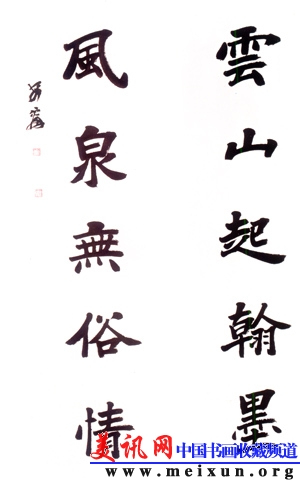 雲山起翰墨
風泉無俗情
美讯网 中国书画收藏频道
www.meixun.org